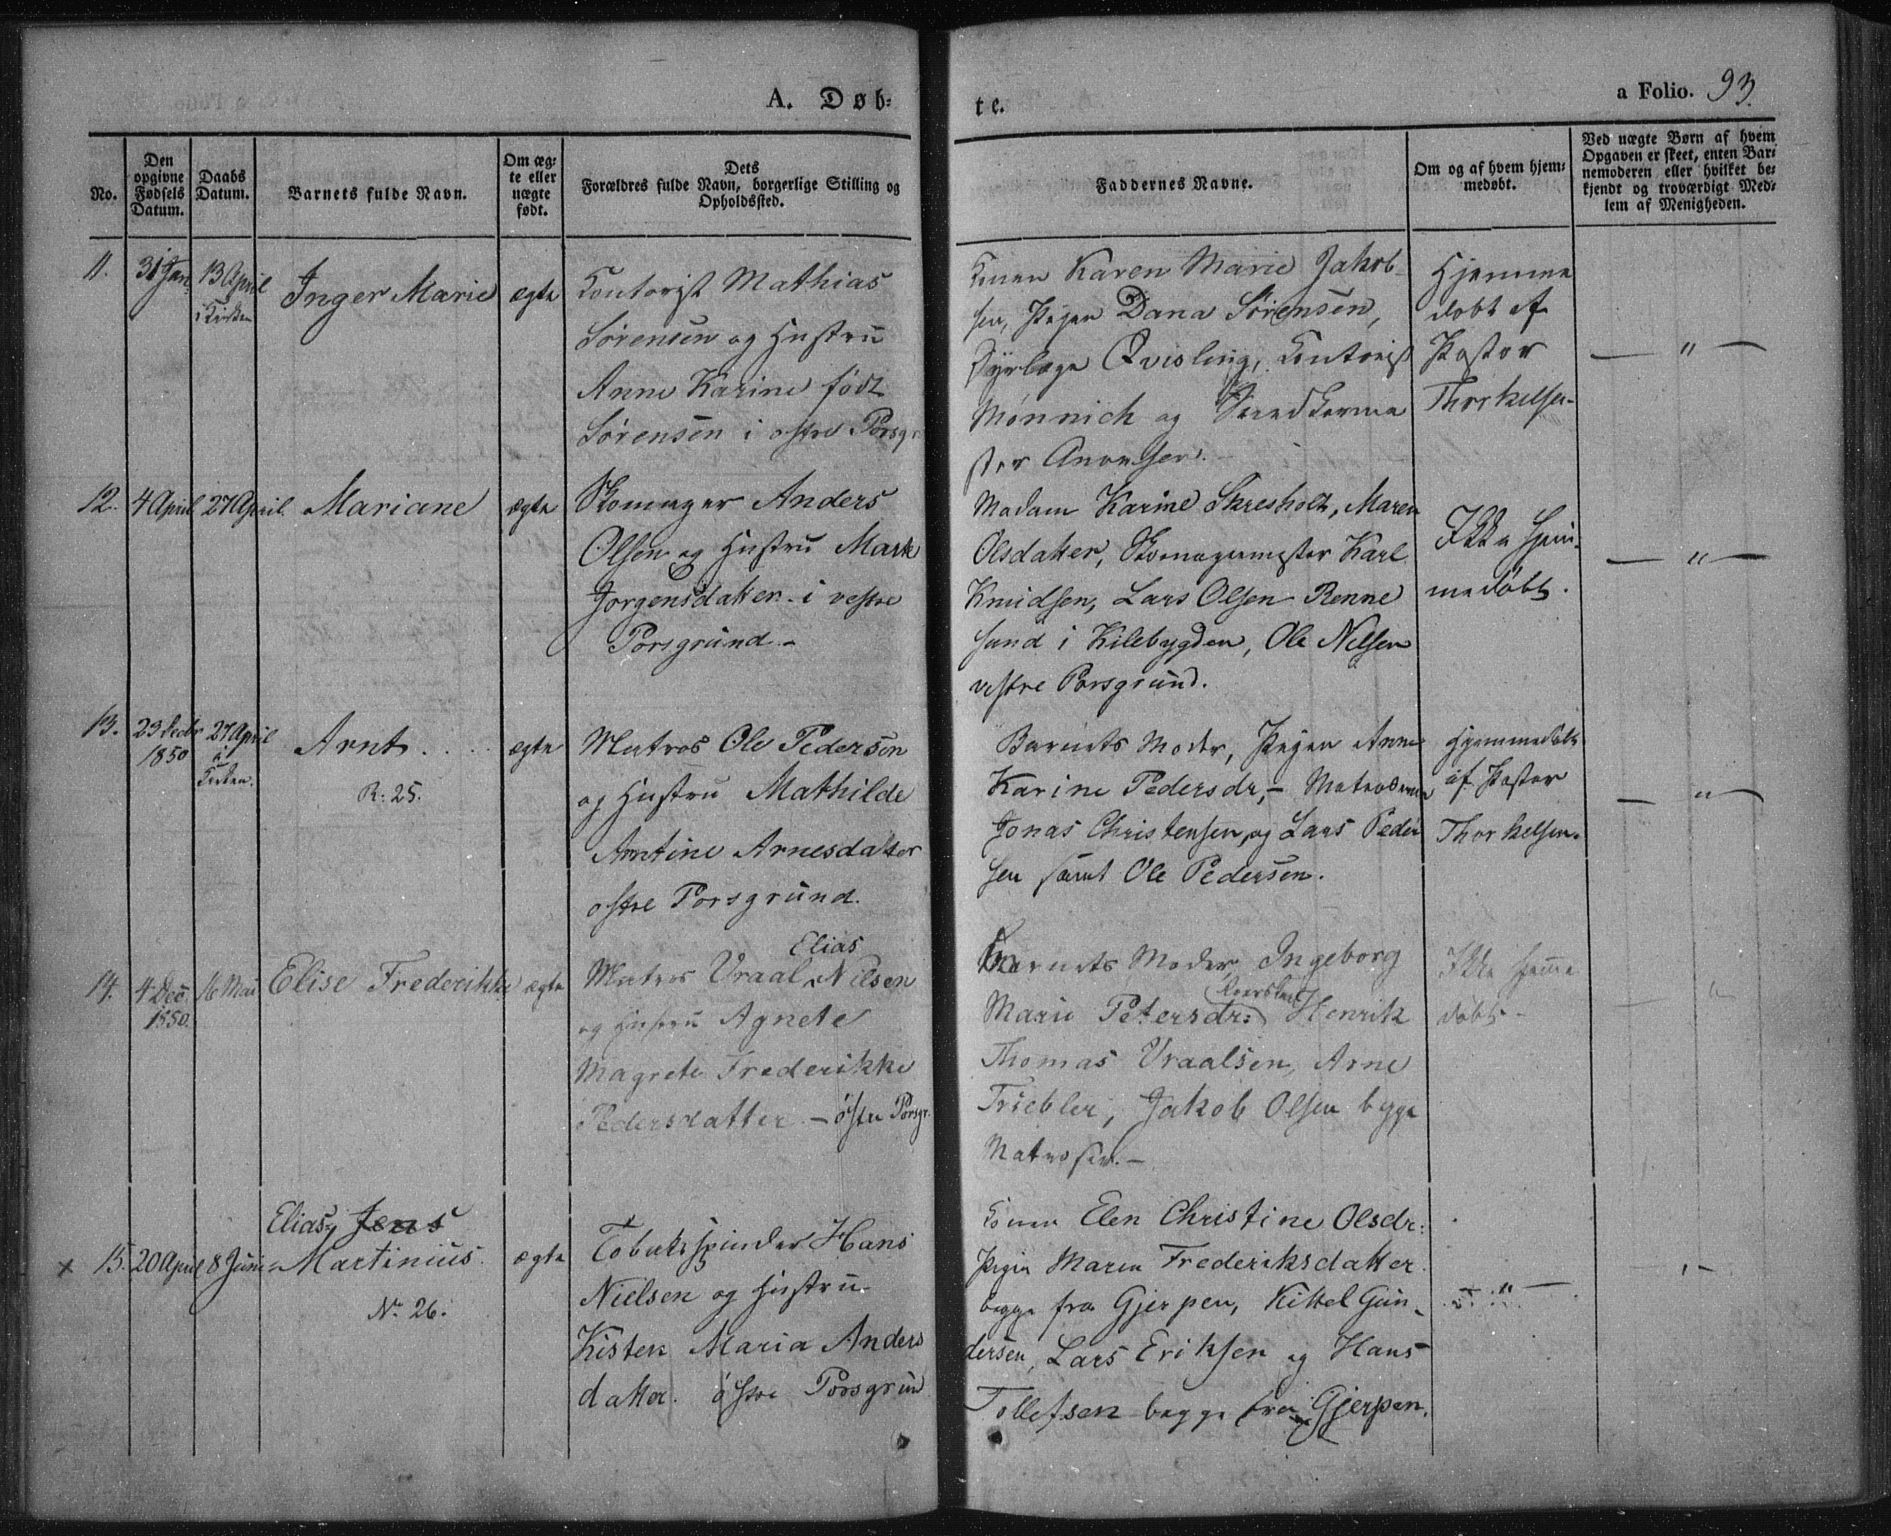 A. Døb-
te.
a Folio. 93.
No.
Den opgivne Fødsels Datum.
Daabs Datum.
Barnets fulde Navn.
Om ægte eller nægte født.
Dets Forældres fulde Navn, borgerlige Stilling og Opholdssted.
Faddernes Navne.
Om og af hvem hjemmedøbt.
Ved nægte Børn af hvem Opgaven er skeet, enten Barnemoderen eller hvilket bekjendt og troværdigt Medlem af Menigheden.
11.
31 Jan.
13 April
i Kirken
Inger Marie
ægte
Contorist Mathias
Sørensen og Hustru
Anne Karine født
Sørensen i østre Porsgr.
Konen Karen Marie Jakob-
sen, Pigen Dana Sørensen,
Dyrlæge Qvisling, Contorist
Mønnich og
ster
Hjemme
døbt af
Pastor
Thorkelsen
— " —
12.
4 April
27 April.
Mariane
ægte
Skomager Anders
Olsen og Hustru Marte
Jorgensdatter i vestre
Porsgrund —
Madam Karine Skresholt, Maren
Olsdatter, Skomagermester Karl
Knudsen, Lars Olsen Renne
sund i Kilebygden, Ole Nilsen
vestre Porsgrund.
Ikke hjem-
medøbt.
— " —
13.
23 Decbr
1850
27 April
i
Kirken.
Arnt
R: 25.
ægte
Matros Ole Pedersen
og Hustru Mathilde
Arntine Arnesdatter
østre Porsgrund.
Barnets Moder, Pigen Anne
Karine Pedersdr, — Matroserne
Jonas Christensen, og Lars Peder
sen samt Ole Pedersen.
Hjemmedøbt
af Pastor
Thorkelsen.
— " —
14.
4 Dec.
1850.
16 Mai
Elise Frederikke
ægte
Elias
Matros Vraal Nilsen
og Hustru Agnete
Magrete Frederikke
Pedersdatter — østre Porsgr.
Barnets Moder, Ingeborg
Marie Petersdr: Henrik
Thomas Vraalsen, Arne
Triebler, Jakob Olsen begge
Matroser. —
Ikke hjemme
døbt —
— "
× 15.
20 April
8 Juni
Elias, Jens
Martinius.
No. 26.
ægte
Tobakspinder Hans
Nielsen og Hustru
Kisten Maria Anders
datter. østre Porsgrund
Konen Elen Christine Olsdr:
Pigen Maren Frederiksdatter
begge fra Gjerpen, Kittel Gun-
dersen, Lars Eriksen og Hans
Tollefsen begge fra Gjerpen.
— " —